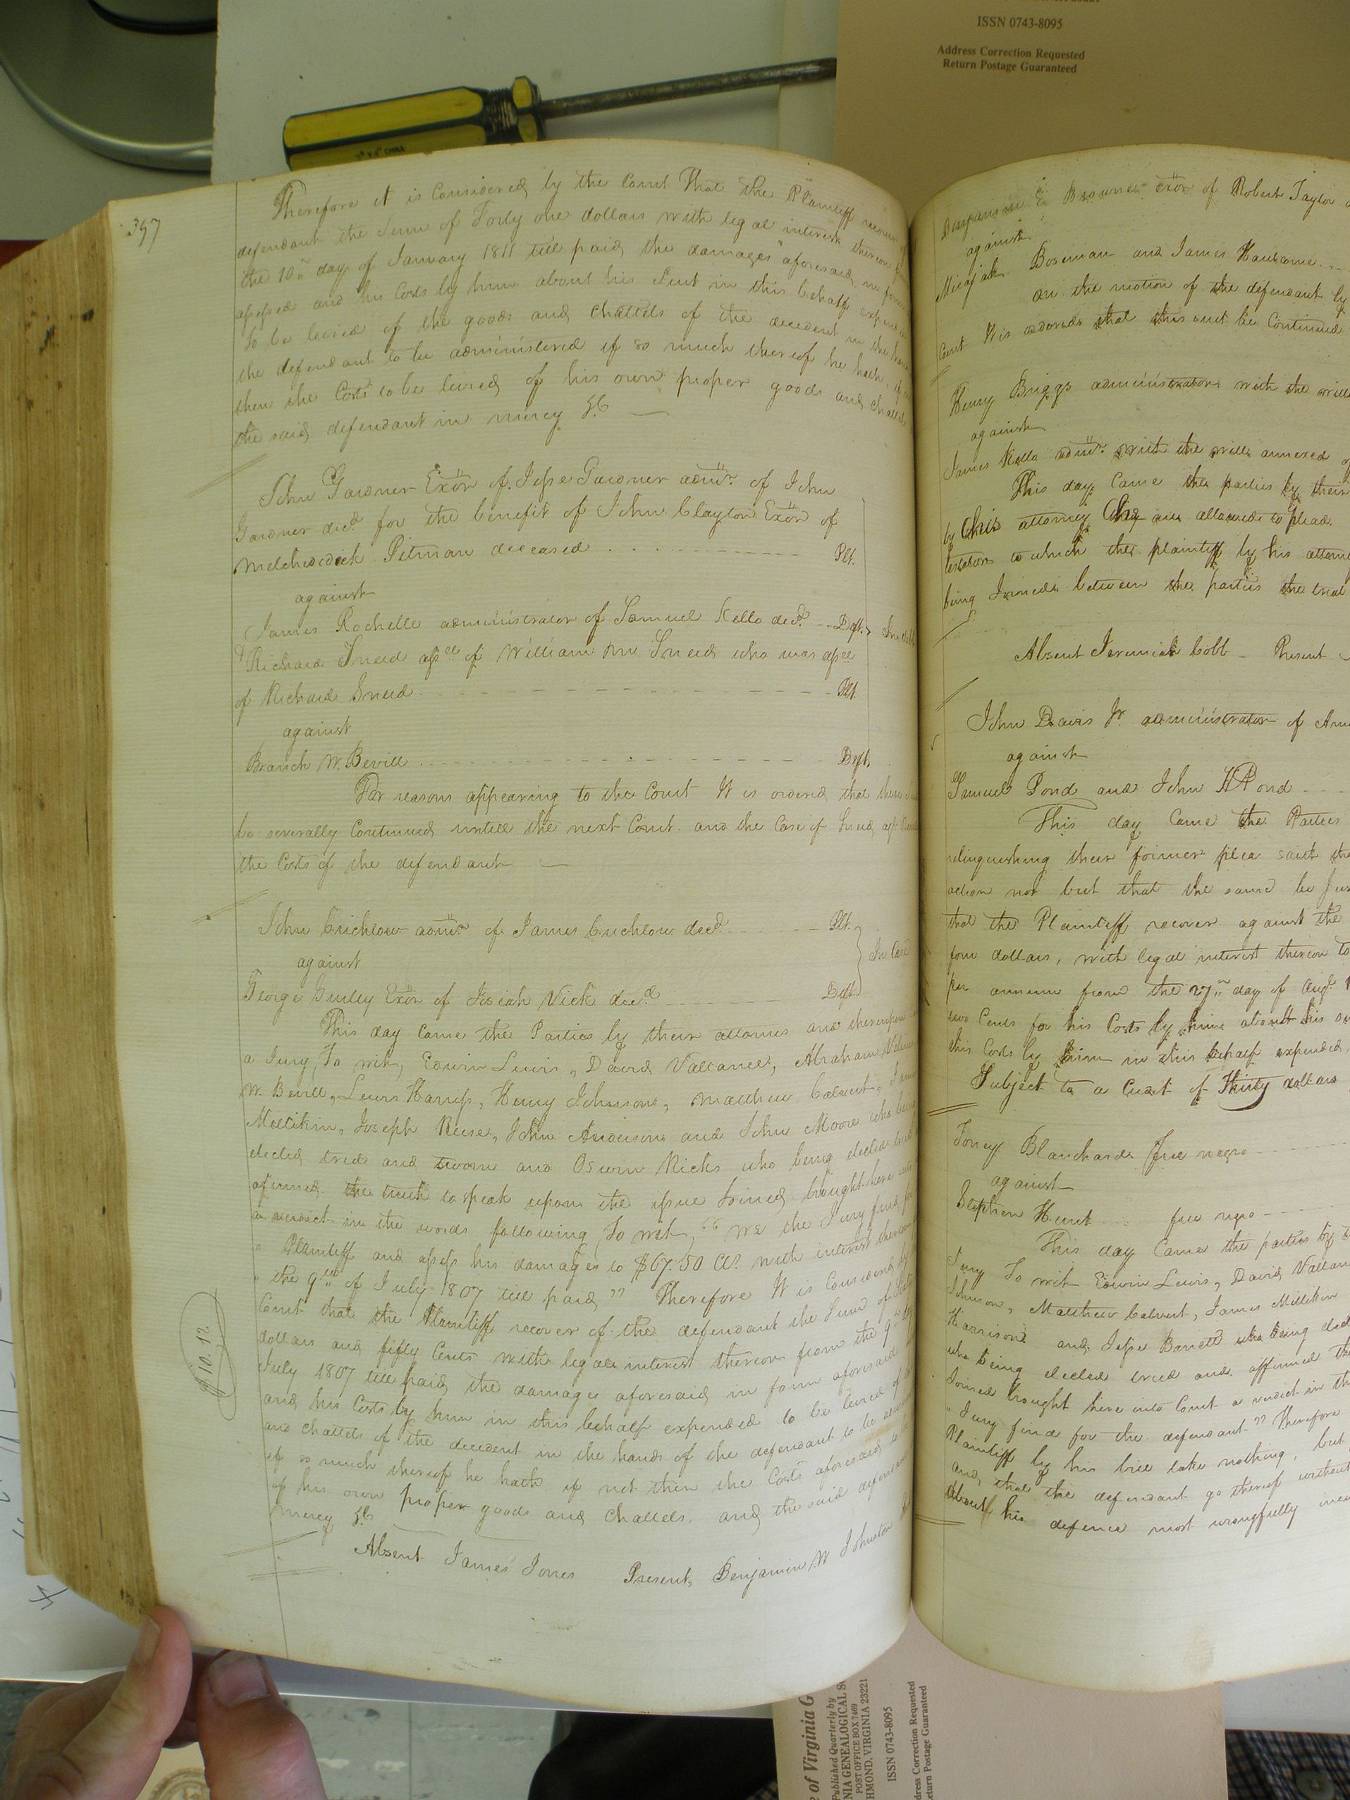 ISSN 0743-8095
Address Correction Requested
Return Postage Guaranteed
397
Therefore it is Considered by the Court That the Plaintiff recover
defendant the Sum of Forty one dollars with legal interest thereon
the 10th day of January 1811 till paid the damages aforesaid in form
assessed and his Costs by him about his Suit in this behalf expended
to be levied of the goods and chattels of the decedent in the hands
the defendant to be administered if so much thereof he hath, if
then the Costs to be levied of his own proper goods and chattels
the said defendant in mercy &c
John Gardner Exor of Jesse Gardner admr. of John
Gardner decd for the benefit of John Clayton Exor of
Pitman deceased Plt.
against
James Rochelle administrator of Samuel Kello decd. Deft.
Richard Sneed assee of William Sneed who was assee
of Richard Sneed Plt.
against
Branch W. Bevill Deft.
For reasons appearing to the Court It is ordered that these
be severally Continued untill the next Court. and the Case of Sneed
the Costs of the defendant
John Crichlow admr of James Crichlow decd. Plt.
against In Case
George Gurley Exor of Josiah Vick decd Deft
This day came the Parties by their attornies and thereupon
a Jury, To wit, Edwin Lewis, David Vallance, Abraham
W. Bevill, Lewis Harriss, Henry Johnson, Matthew Calvert,
Millikin, Joseph Reese, John Anderson and John Moore who being
elected tried and sworn and Oswin Ricks who being elected tried
afirmed the truth to speak upon the issue Joined brought here into
a verdict in the words following To wit, "We the Jury find for
" Plaintiff and assess his damages to $67.50 Cts. with interest thereon
" the 9th of July 1807 till paid" Therefore It is Considered by
Court that the Plaintiff recover of the defendant the Sum of
dollars and fifty Cents with legal interest thereon from the 9th
July 1807 till paid, the damages aforesaid in form aforesaid
and his Costs by him in this behalf expended to be levied of
and chattels of the decedent in the hands of the defendant to be
if so much thereof he hath if not then the Costs aforesaid
of his own proper goods and chattels. and the said defendant
mercy &c
Absent James Jones Present, Benjamin W Johnston
Browne exor of Robert Taylor
against
Micajah Boseman and James Hansome
on the motion of the defendant by
Court It is ordered that this suit be Continued
Henry Briggs administrator with the will
against
James Kello admr. with the will annexed of
This day Came the parties by their
by his attorney
testators to which the plaintiff by his attorney
being Joined between the parties the trial
Absent Jeremiah Cobb Present
John Davis Jr administrator of
against
Samuel Pond and John H Pond
This day Came the Parties
relinquishing their former plea saith
action nor but that the same be Just
that the Plaintiff recover against the
four dollars, with legal interest thereon
per annum from the 27th day of Augt.
two Cents for his Costs by him about his
this Costs by him in this behalf expended,
Subject to a Credit of Thirty dollars
Toney Blanchard free negro
against
Stephen Hunt free negro
This day Came the parties by
Jury To wit Edwin Lewis, David Vallance
Johnson, Matthew Calvert, James Millikin
Harrison and Jesse Barrett who being
who being elected tried and affirmed the
Joined brought here into Court a verdict in the
" Jury find for the defendant." Therefore
Plaintiff by his bill take nothing, but
and, that the defendant go thereof without
about his defence most wrongfully
of Virginia G
Published Quarterly by
NIA GENEALOGICAL S
POST OFFICE BOX 7469
HMOND, VIRGINIA 23221
ISSN 0743-8095
dress Correction Requested
eturn Postage Guaranteed